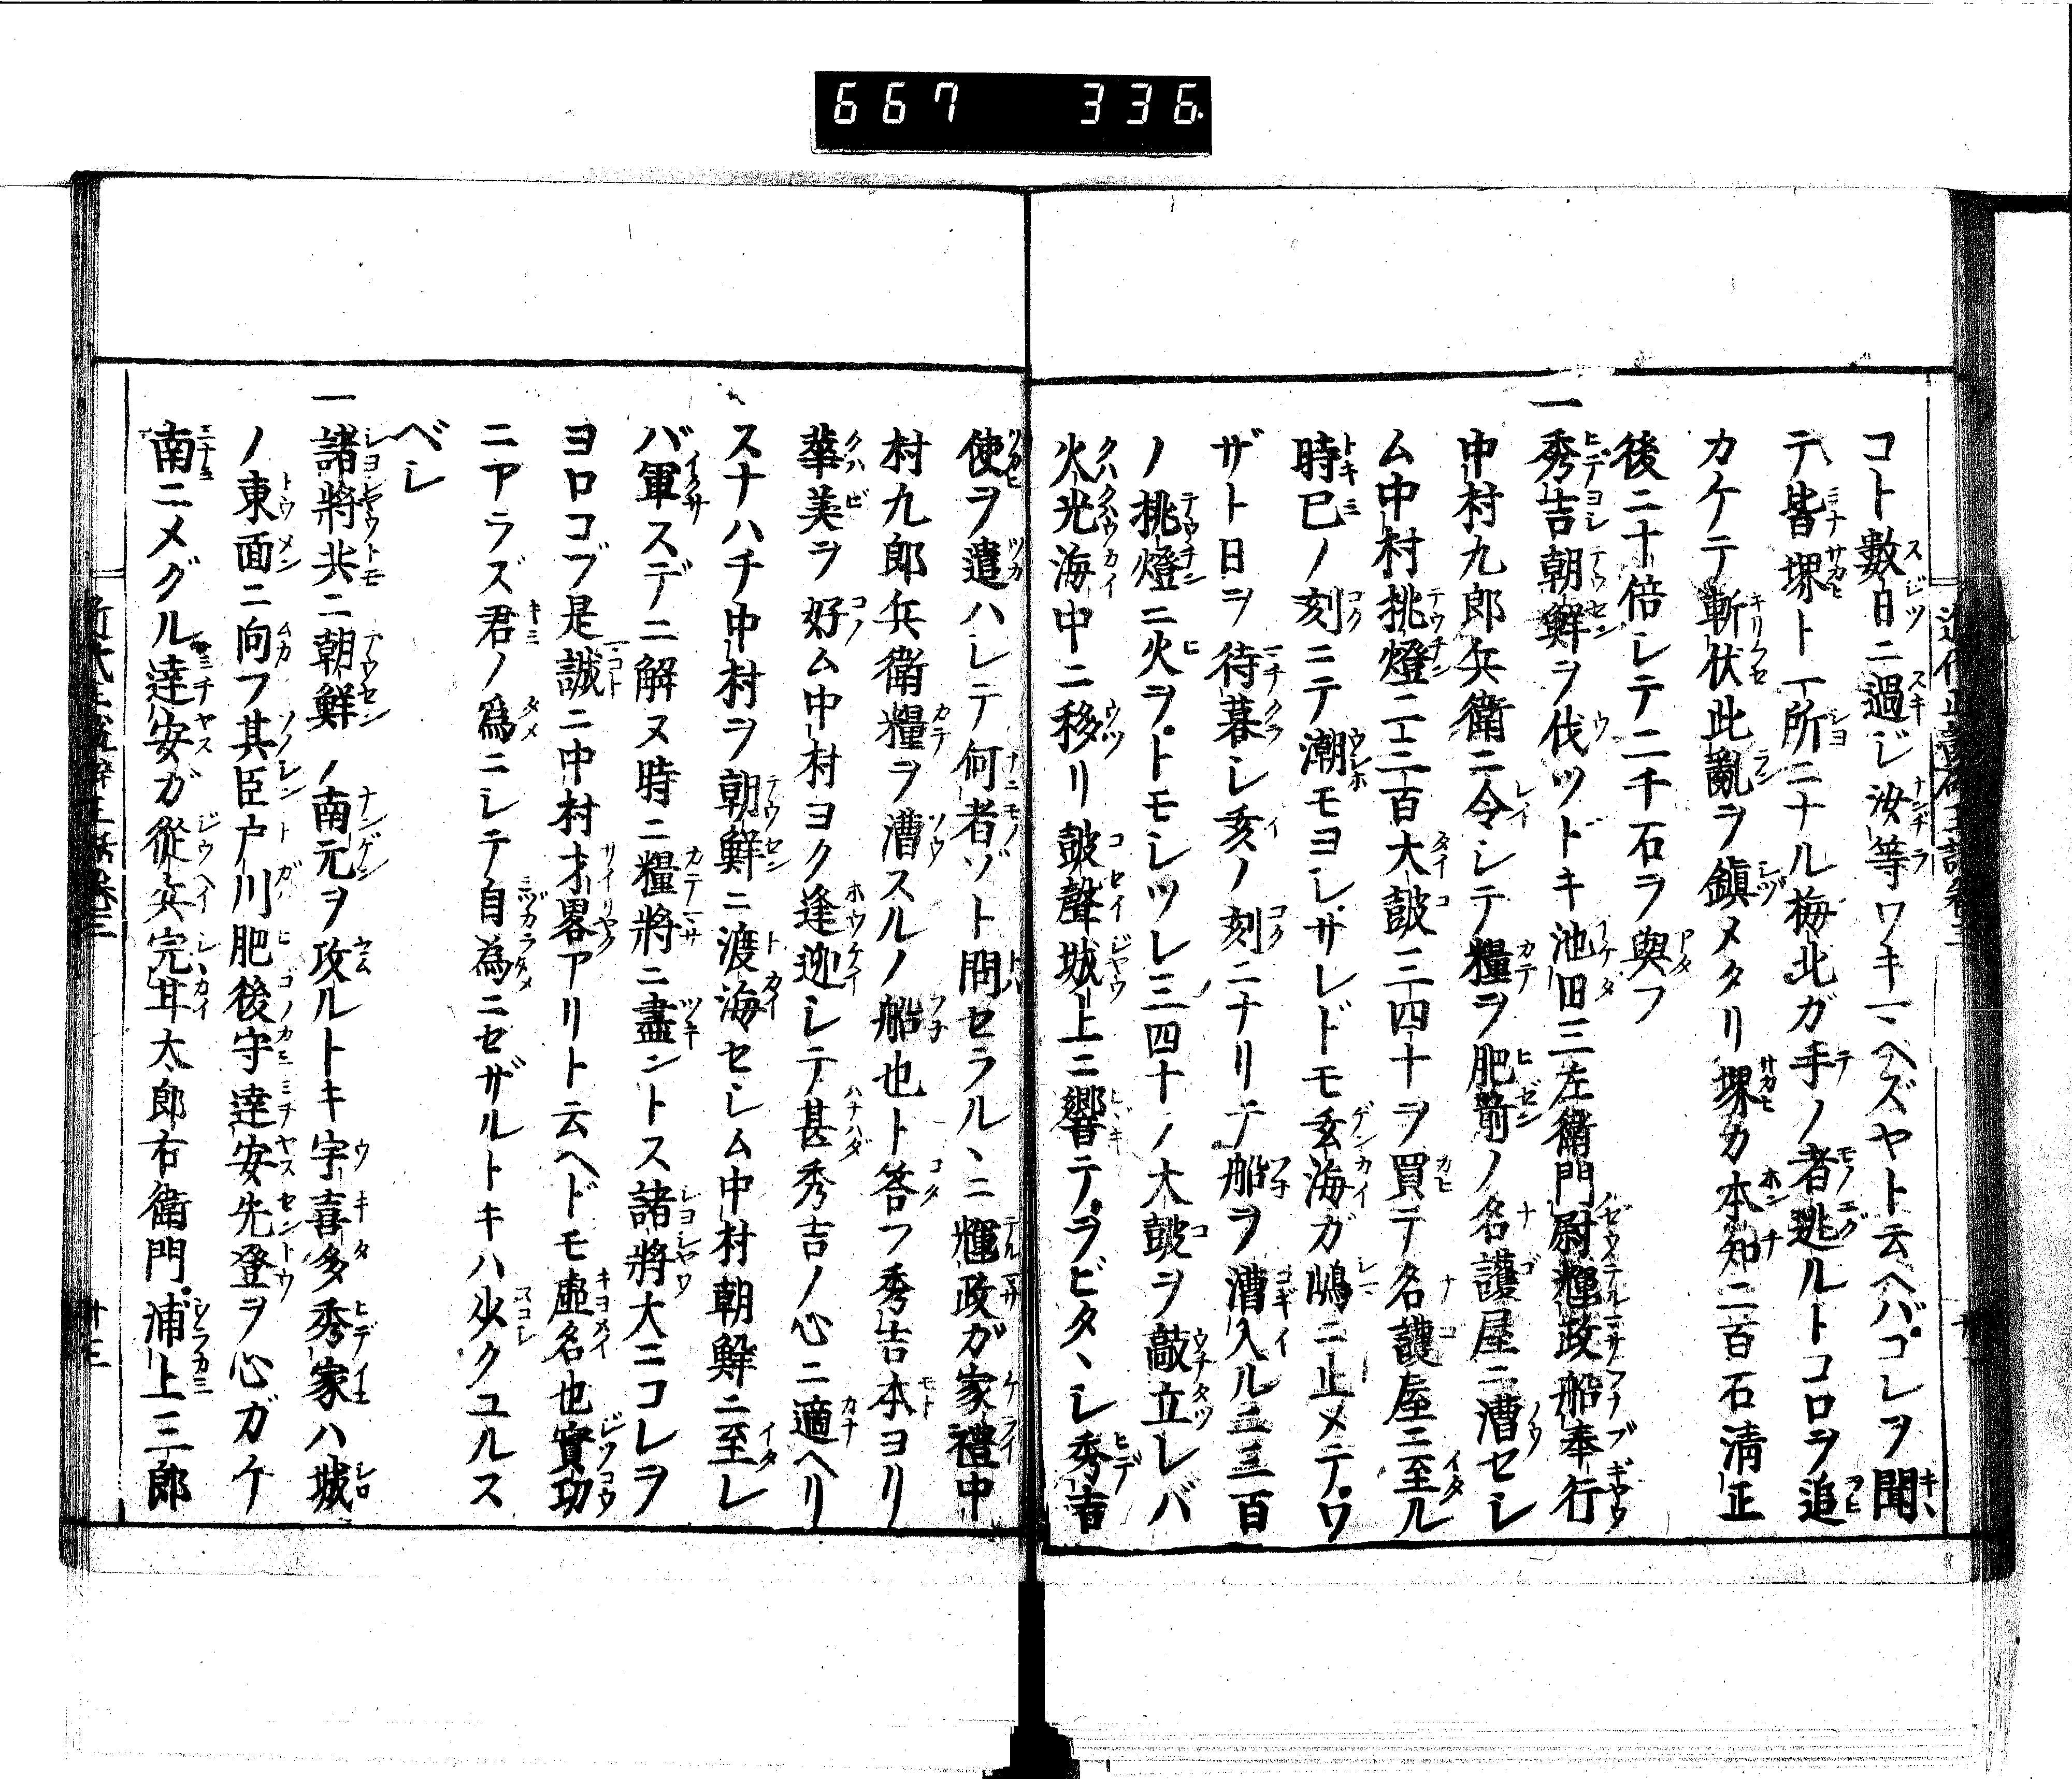 667 336
コト數日ニ過ジ汝等ワキマヘズヤト云ヘバコレヲ聞
テ皆堺ト一所ニナル梅北ガ手ノ者逃ルトコロヲ追
カケテ斬伏此亂ヲ鎭メタリ堺カ本知二百石清正
後ニ十倍シテ二千石ヲ與フ
一秀吉朝鮮ヲ伐ツドキ池田三左衛門尉輝政船奉行
中村九郎兵衛ニ令シテ糧ヲ肥前ノ名護屋ニ漕セシ
ム中村挑燈二三百大皷三四十ヲ買テ名護屋ニ至ル
時巳ノ刻ニテ潮モヨシサレドモ玄海ガ嶋ニ止メテワ
ザト日ヲ待暮シ亥ノ刻ニナリテ船ヲ漕入ル二三百
ノ挑燈ニ火ヲトモシツレ三四十ノ大皷ヲ敲立レバ
火光海中ニ移リ皷聲城上ニ響テヲビタヽシ秀吉
使ヲ遣ハシテ何者ゾト問セラルヽニ輝政ガ家禮中
村九郎兵衛糧ヲ漕スルノ船也ト答フ秀吉本ヨリ
華美ヲ好ム中村ヨク逢迎シテ甚秀吉ノ心ニ適ヘリ
スナハチ中村ヲ朝鮮ニ渡海セシム中村朝鮮ニ至レ
バ軍スデニ解ヌ時ニ糧將ニ盡ントス諸將大ニコレヲ
ヨロコブ是誠ニ中村才畧アリト云ヘドモ虚名也實功
ニアラズ君ノ爲ニシテ自為ニセザルトキハ少クユルス
ベシ
一諸將共ニ朝鮮ノ南元ヲ攻ルトキ宇喜多秀家ハ城
ノ東面ニ向フ其臣戸川肥後守達安先登ヲ心ガケ
南ニメグル達安ガ從兵完甘太郎右衛門浦上三郎